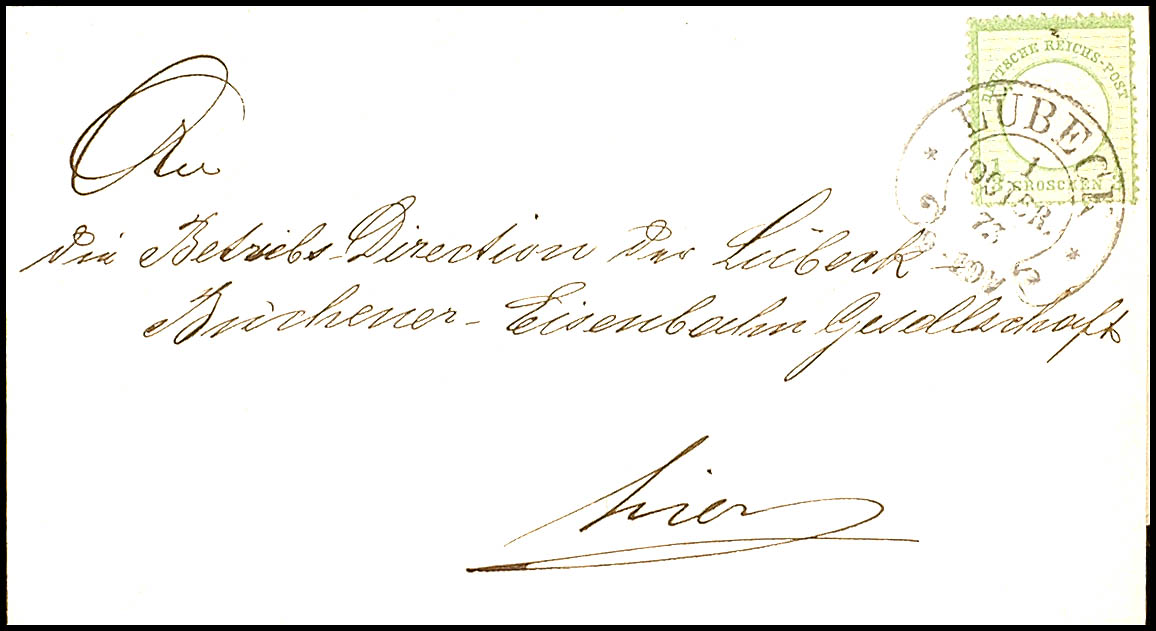 DEUTSCHE REICHS-POST
LÜBECK
1
OCTBR.
73
1/3 GROSCHEN
An
die Betriebs-Direction der Lübeck-
Büchener-Eisenbahn Gesellschaft
hier